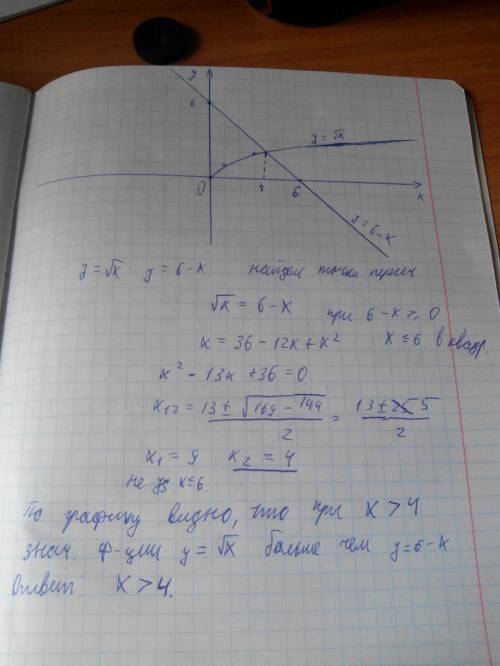 y
6
y = √x
0
4
6
x
y = 6 - x
y = √x y = 6 - x найдем точки пересеч
√x = 6 - x при 6 - x ≥ 0
x = 36 - 12x + x² x ≤ 6 в квадр.
x² - 13x + 36 = 0
x₁₂ = (13 ± √(169 - 144))/2 = (13 ± 5)/2
x₁ = 9 x₂ = 4
не уд. x ≤ 6
По графику видно, что при x > 4
знач. ф-ции y = √x больше чем y = 6 - x
Ответ: x > 4.